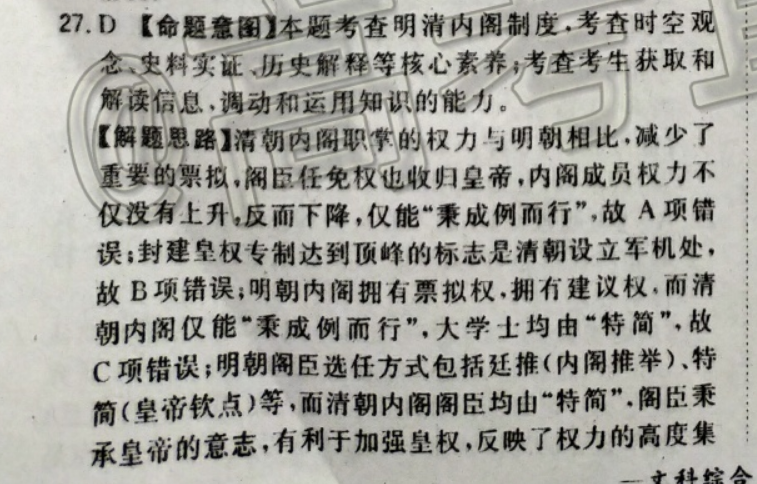 27.D 【命题意图】本题考查明清内阁制度,考查时空观
念、史料实证、历史解释等核心素养;考查考生获取和
解读信息、调动和运用知识的能力。
【解题思路】清朝内阁职掌的权力与明朝相比,减少了
重要的票拟,阁臣任免权也收归皇帝,内阁成员权力不
仅没有上升,反而下降,仅能“秉成例而行”,故 A 项错
误;封建皇权专制达到顶峰的标志是清朝设立军机处,
故 B 项错误;明朝内阁拥有票拟权,拥有建议权,而清
朝内阁仅能“秉成例而行”,大学士均由“特简”,故
C 项错误;明朝阁臣选任方式包括廷推(内阁推举)、特
简(皇帝钦点)等,而清朝内阁阁臣均由“特简”,阁臣秉
承皇帝的意志,有利于加强皇权,反映了权力的高度集
—文科综合